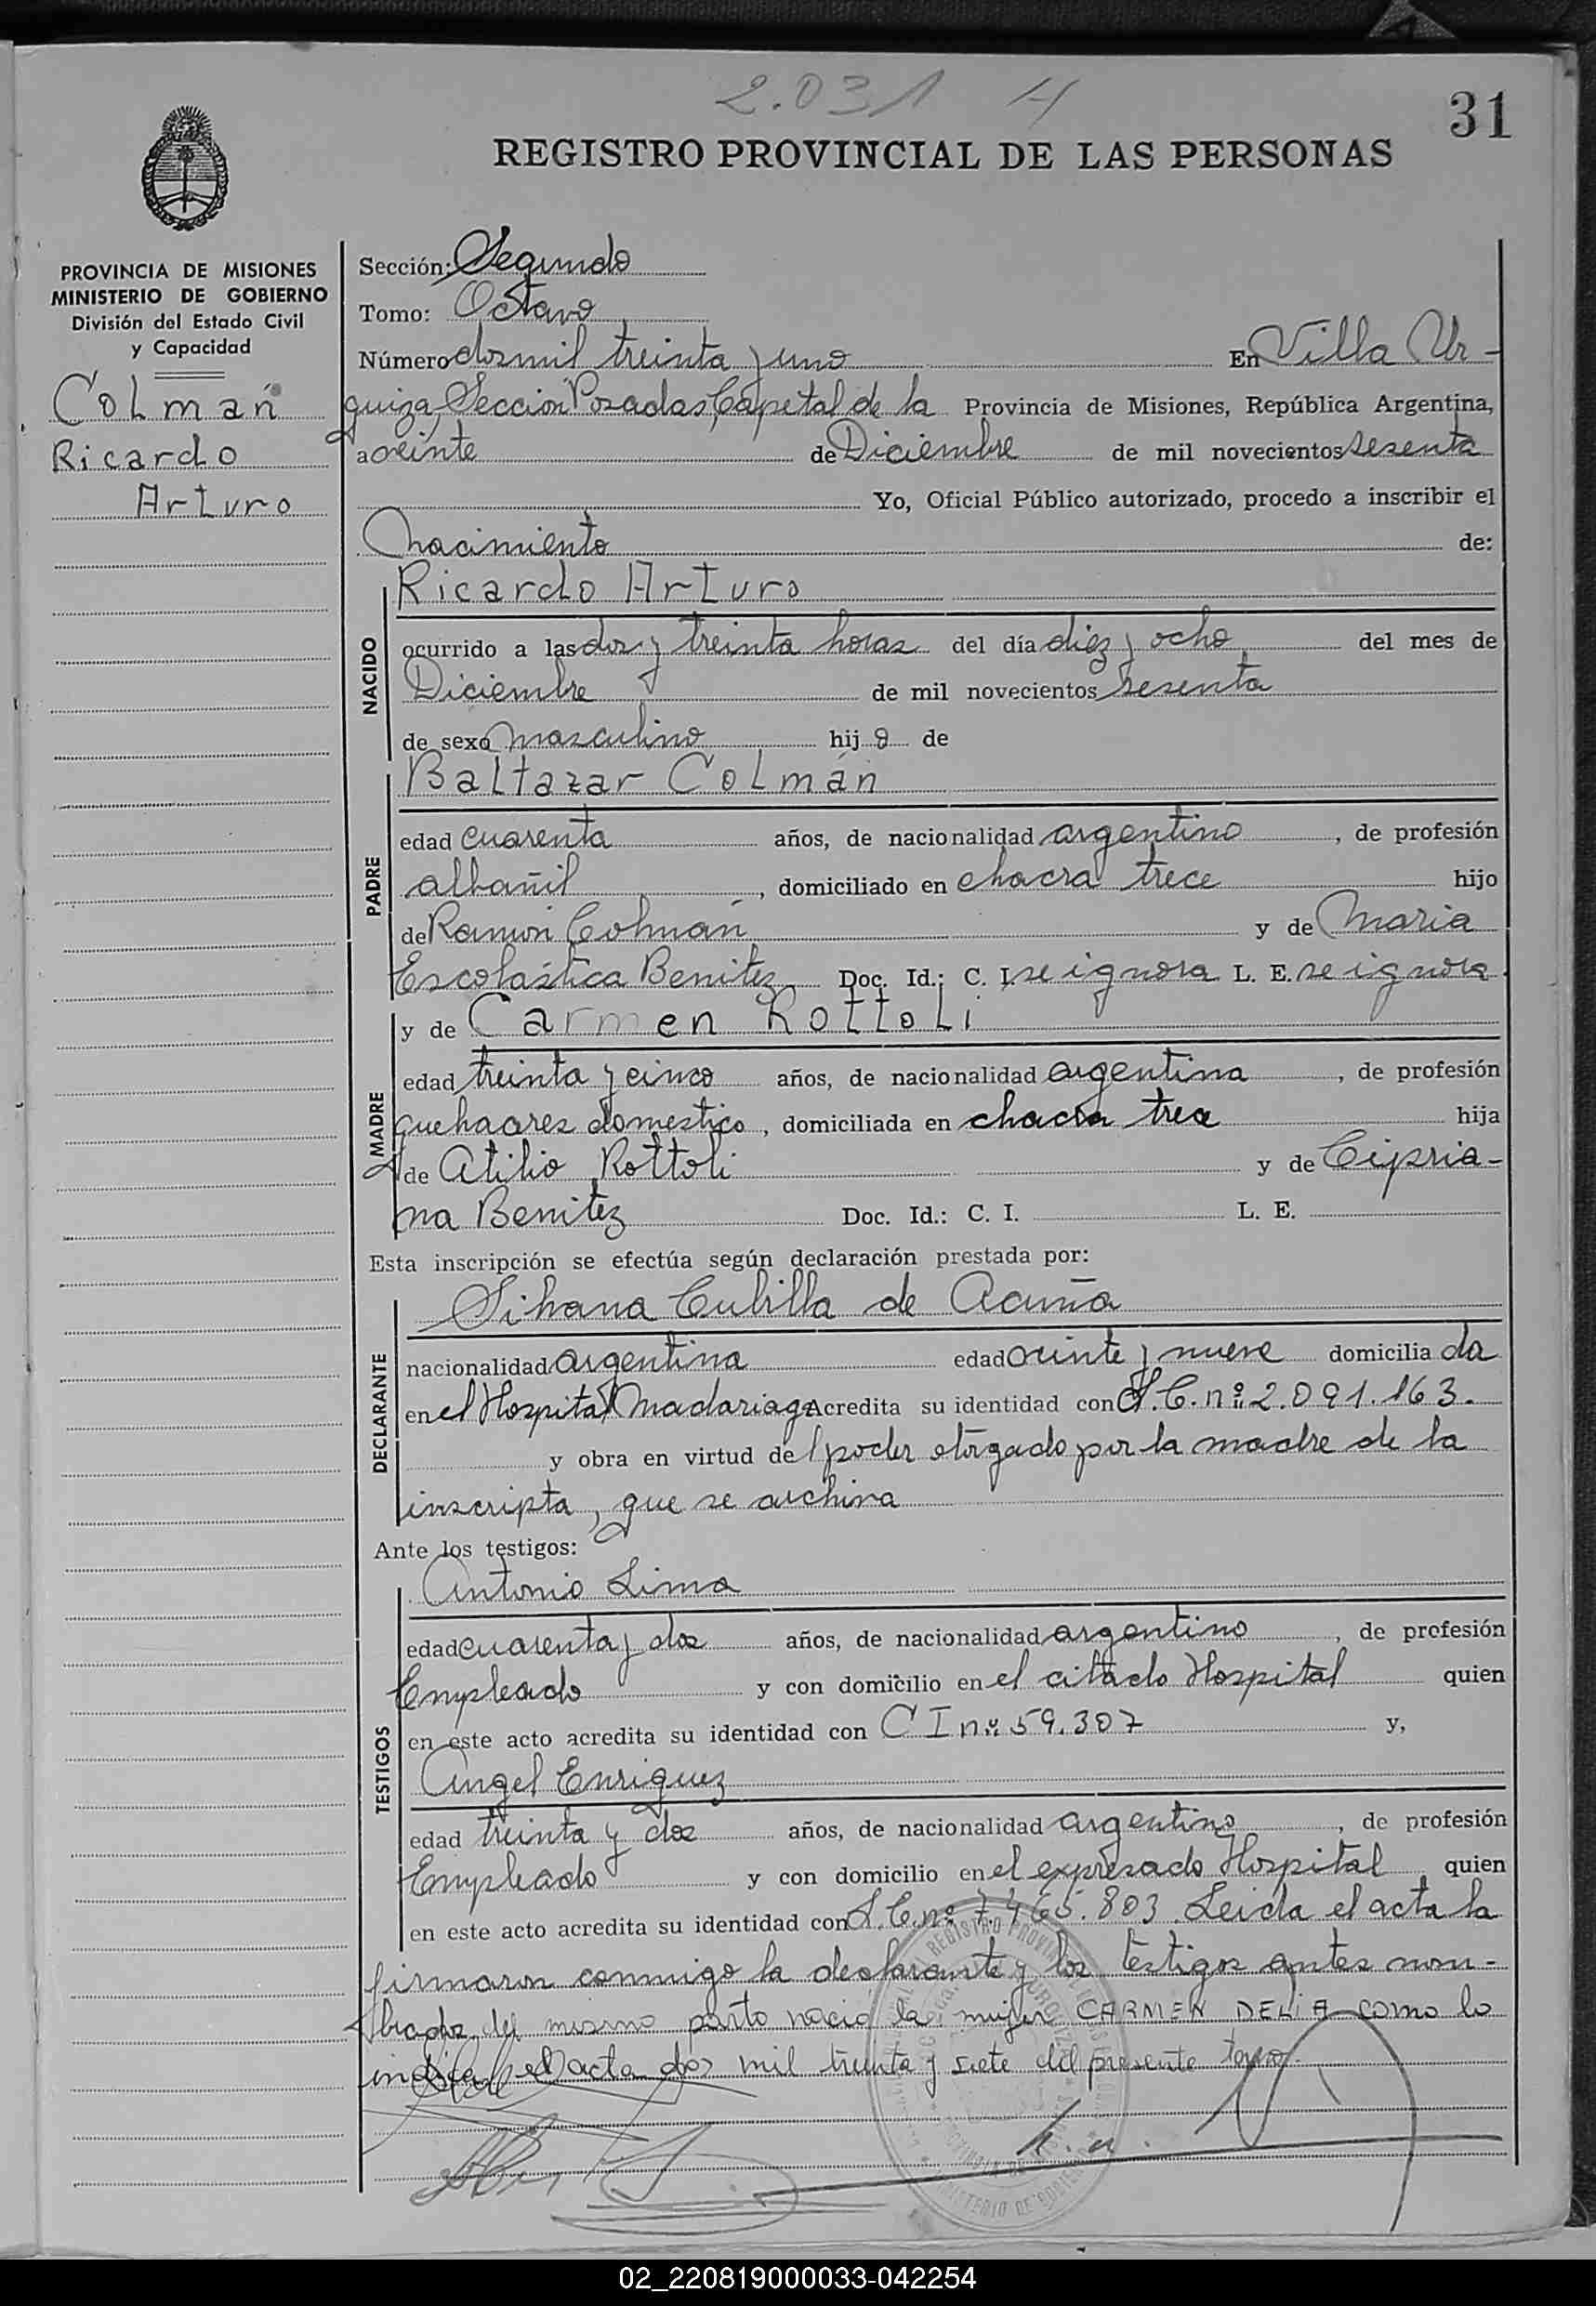 2.031 H
31
REGISTRO PROVINCIAL DE LAS PERSONAS
PROVINCIA DE MISIONES
MINISTERIO DE GOBIERNO
División del Estado Civil
y Capacidad
Colmán
Ricardo
Arturo
Sección: Segundo
Tomo: Octavo
Número dos mil treinta y uno En Villa Ur-
quiza, Sección Posadas, Capital de la Provincia de Misiones, República Argentina,
a veinte de Diciembre de mil novecientos sesenta
Yo, Oficial Público autorizado, procedo a inscribir el
nacimiento de:
NACIDO
Ricardo Arturo
ocurrido a las dos y treinta horas del día diez y ocho del mes de
Diciembre de mil novecientos sesenta
de sexo masculino hijo de
PADRE
Baltazar Colmán
edad cuarenta años, de nacionalidad argentino, de profesión
albañil, domiciliado en chacra trece hijo
de Ramón Colmán y de Maria
Escolástica Benitez Doc. Id.: C. I. se ignora L. E. se ignora
MADRE
y de Carmen Rottoli
edad treinta y cinco años, de nacionalidad argentina, de profesión
quehaceres domestico, domiciliada en chacra trece hija
de Atilio Rottoli y de Cipria-
na Benitez Doc. Id.: C. I. L. E.
Esta inscripción se efectúa según declaración prestada por:
DECLARANTE
Silvana Cubilla de Acuña
nacionalidad argentina edad veinte y nueve domiciliada
en el Hospital Madariaga Acredita su identidad con L.C. nº 2.091.163.
y obra en virtud del poder otorgado por la madre de la
inscripta, que se archiva
Ante los testigos:
TESTIGOS
Antonio Lima
edad cuarenta y dos años, de nacionalidad argentino, de profesión
Empleado y con domicilio en el citado Hospital quien
en este acto acredita su identidad con C I nº 59.307 y,
Angel Enriquez
edad treinta y dos años, de nacionalidad argentino, de profesión
Empleado y con domicilio en el expresado Hospital, quien
en este acto acredita su identidad con L.E. nº 7.465.803. Leida el acta la
firmaron conmigo la declarante y los testigos antes nom-
brados, del mismo parto nació la mujer CARMEN DELIA como lo
indica el acta dos mil treinta y siete del presente tomo.
02_220819000033-042254